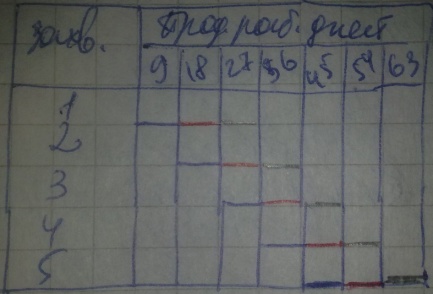 захв.
Прод. раб. дней
9 18 27 36 45 54 63
1
2
3
4
5